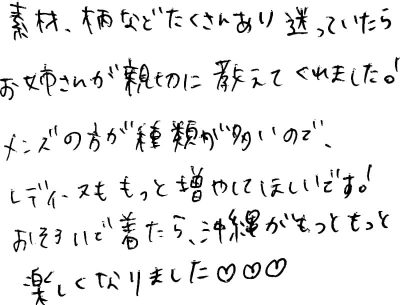 素材、柄などたくさんあり迷っていたら
お姉さんが親切に教えてくれました!
メンズの方が種類が多いので、
レディースももっと増やしてほしいです!
おそろいで着たら、沖縄がもっともっと
楽しくなりました♡♡♡